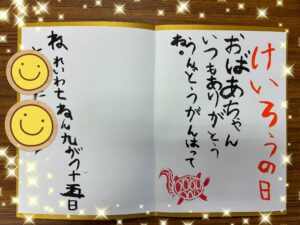 けいろうの日
おばあちゃん
いつもありがとう
うんどうがんばって
ね。
ね れいわ七ねん九がつ十五日